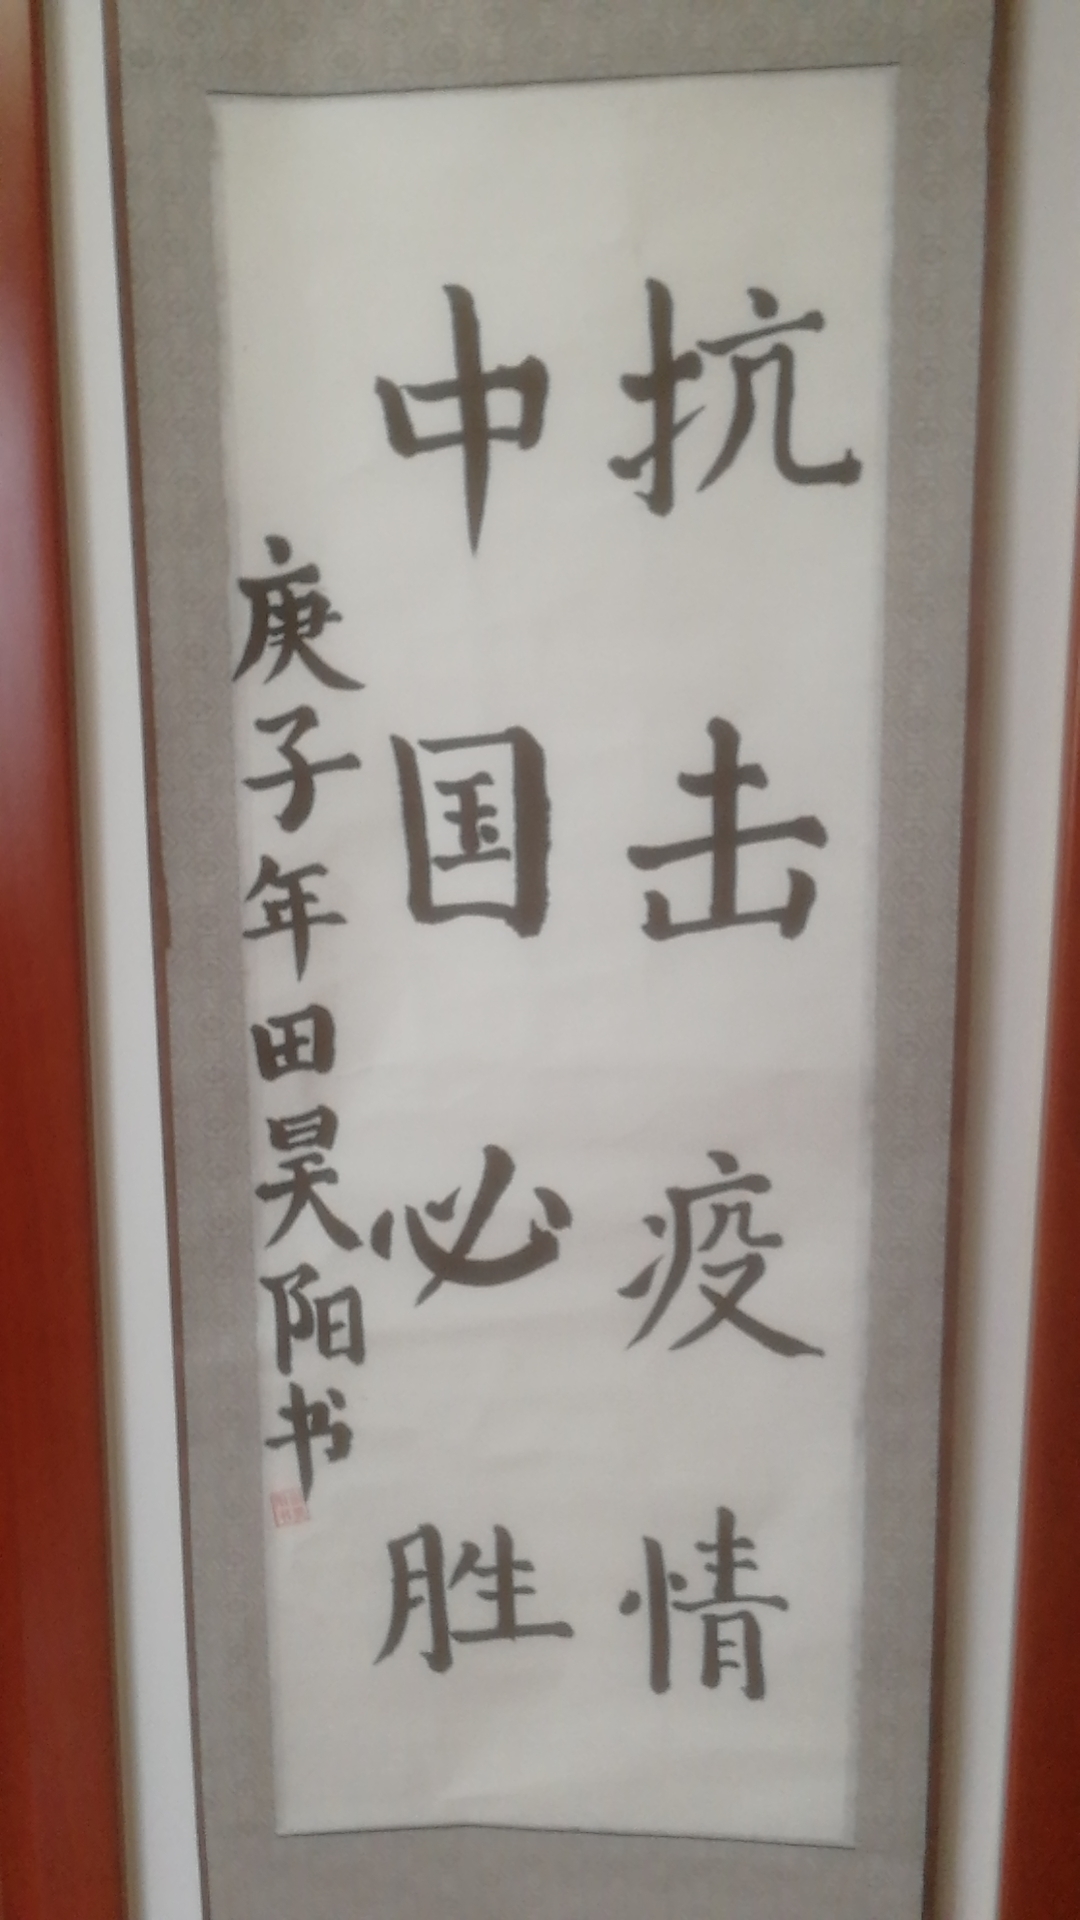 抗击疫情
中国必胜
庚子年田昊阳书